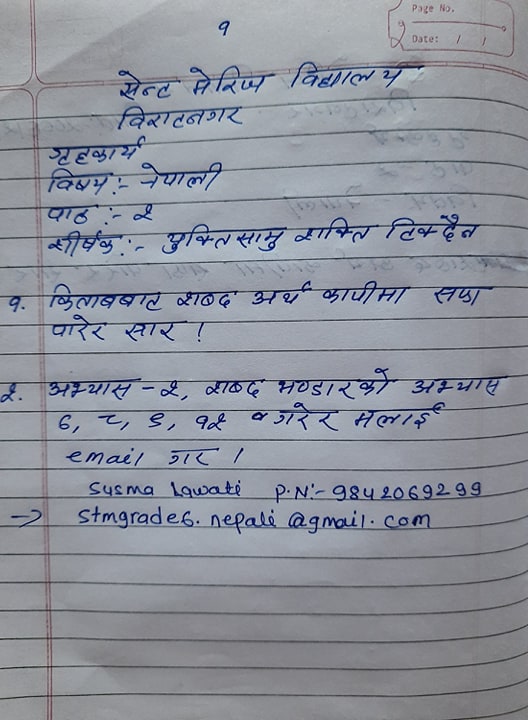 Page No.
Date: / /
१
सेन्ट मेरिज विद्यालय
विराटनगर
गृहकार्य
विषय:- नेपाली
पाठ :- २
शीर्षक:- युक्तिसामु शक्ति टिक्दैन
१. किताबबाट शब्द अर्थ कापीमा सफा
पारेर सार !
२. अभ्यास - २, शब्द भण्डारको अभ्यास
६, ८, ९, १२ गरेर मलाई
email गर ।
Susma Lawati P.N:- 9842069299
→ stmgrade6.nepali@gmail.com